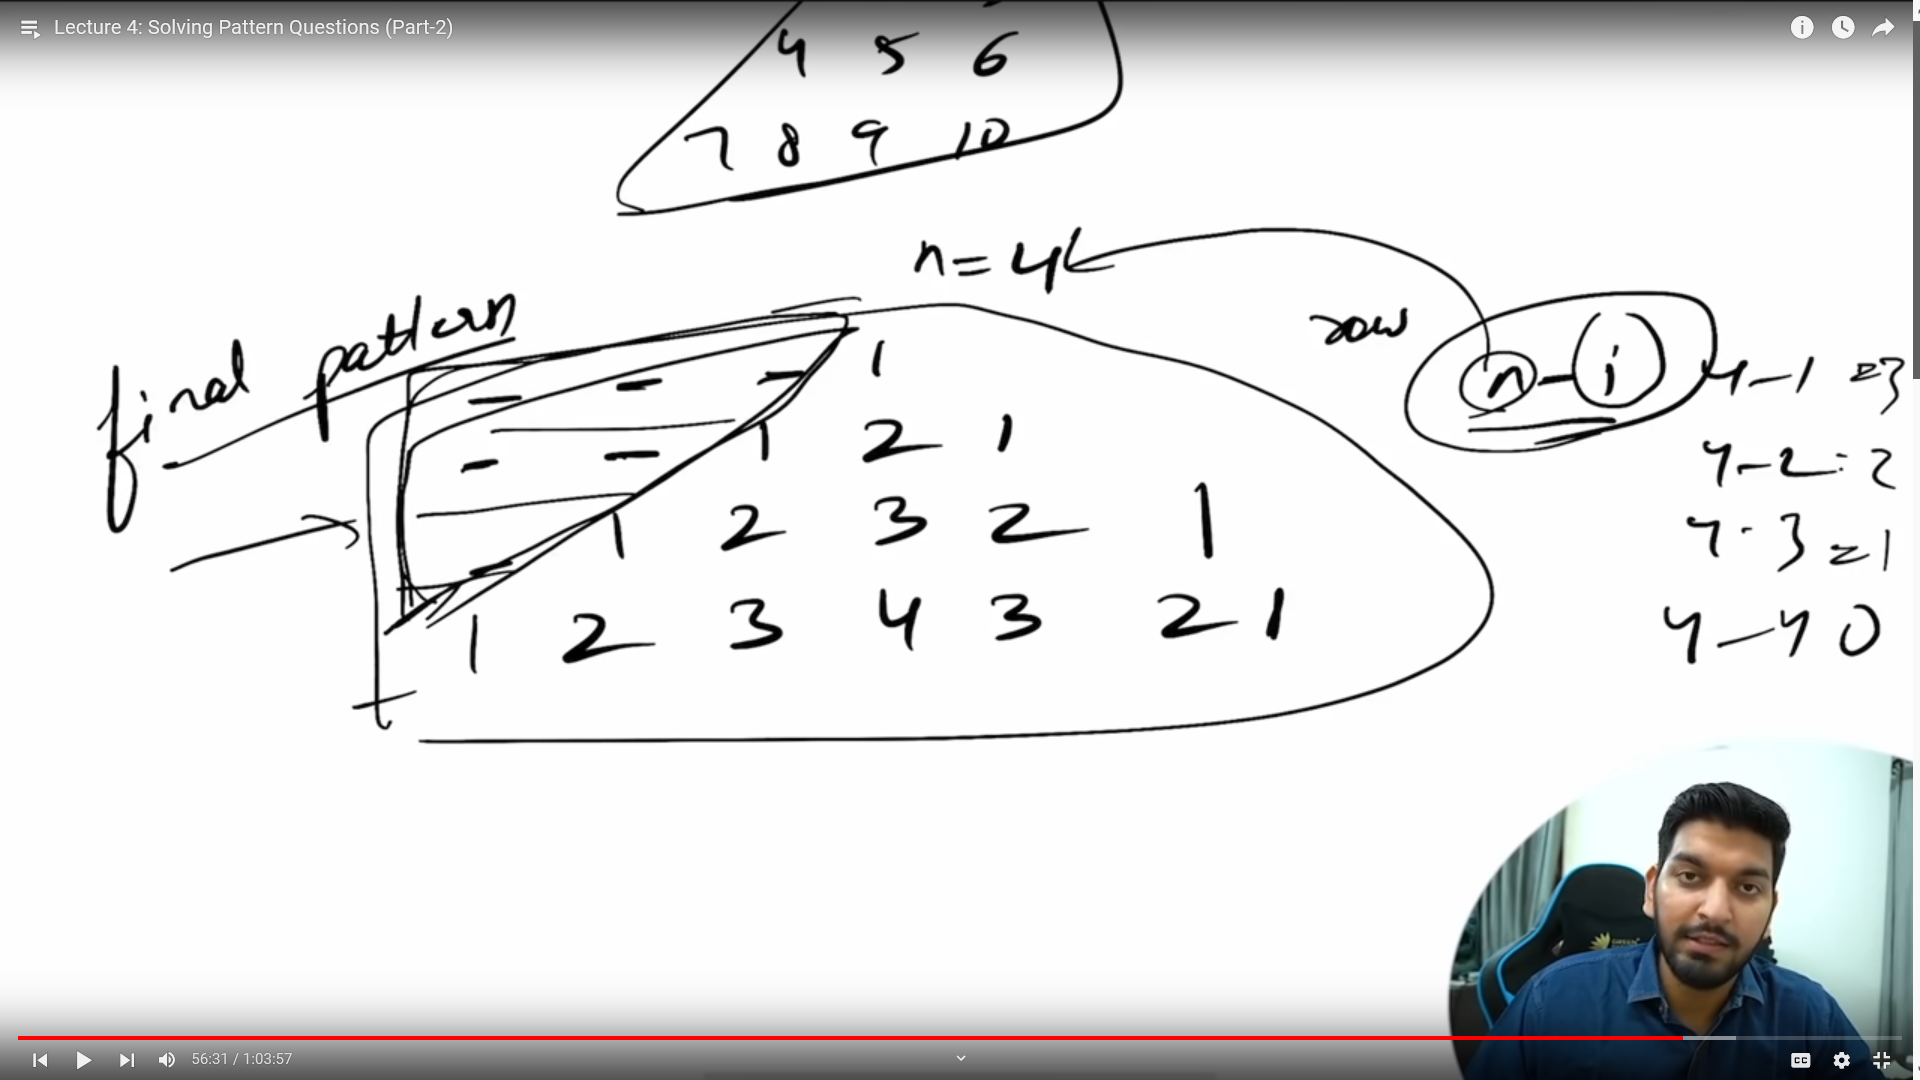 Lecture 4: Solving Pattern Questions (Part-2)
4 5 6
7 8 9 10
n = 4
final pattern
row n - i
4 - 1 = 3
- - - 1
4 - 2 = 2
- - 1 2 1
4 - 3 = 1
- 1 2 3 2 1
4 - 4 0
1 2 3 4 3 2 1
56:31 / 1:03:57
CC